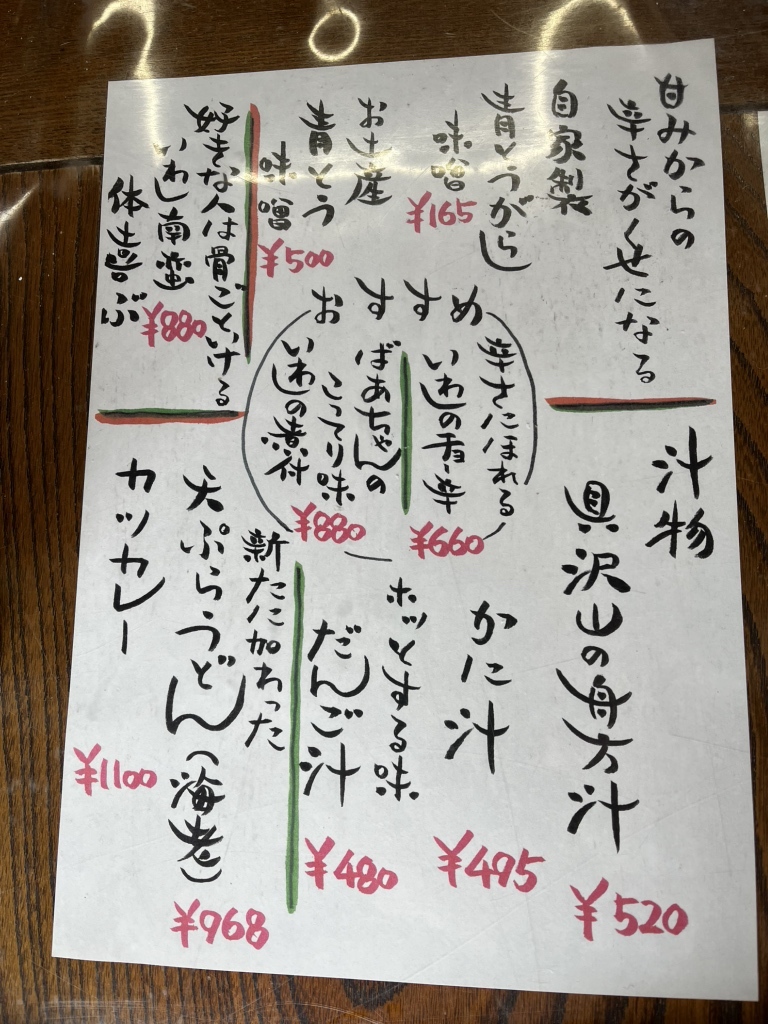 甘みからの
辛さがくせになる
自家製
青とうがらし
味噌
¥165
お土産
青とう
味噌
¥500
好きな人は骨ごといける
いわし南蛮
¥880
体喜ぶ
おすすめ
辛さにほれる
いわしのチョー辛
¥660
ばあちゃんの
こってり味
いわしの煮付
¥880
汁物
具沢山の舟方汁
¥520
かに汁
¥495
ホッとする味
だんご汁
¥480
新たに加わった
天ぷらうどん(海老)
¥968
カツカレー
¥1100